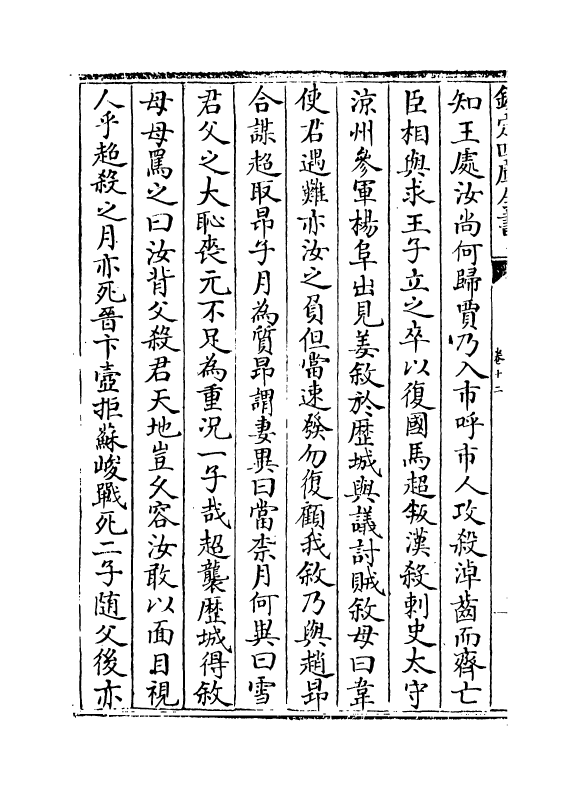 欽定四庫全書
卷十二
知王處汝尚何歸賈乃入市呼市人攻殺淖齒而齊亡
臣相與求王子立之卒以復國馬超叛漢殺刺史太守
涼州參軍楊阜出見姜敘於歴城與議討賊敘母曰韋
使君遇難亦汝之負但當速發勿復顧我敘乃與趙昂
合謀超取昂子月為質昂謂妻異曰當柰月何異曰雪
君父之大恥喪元不足為重況一子哉超襲歴城得敘
母母罵之曰汝背父殺君天地豈久容汝敢以面目視
人乎超殺之月亦死晉卞壼拒蘇峻戰死二子隨父後亦